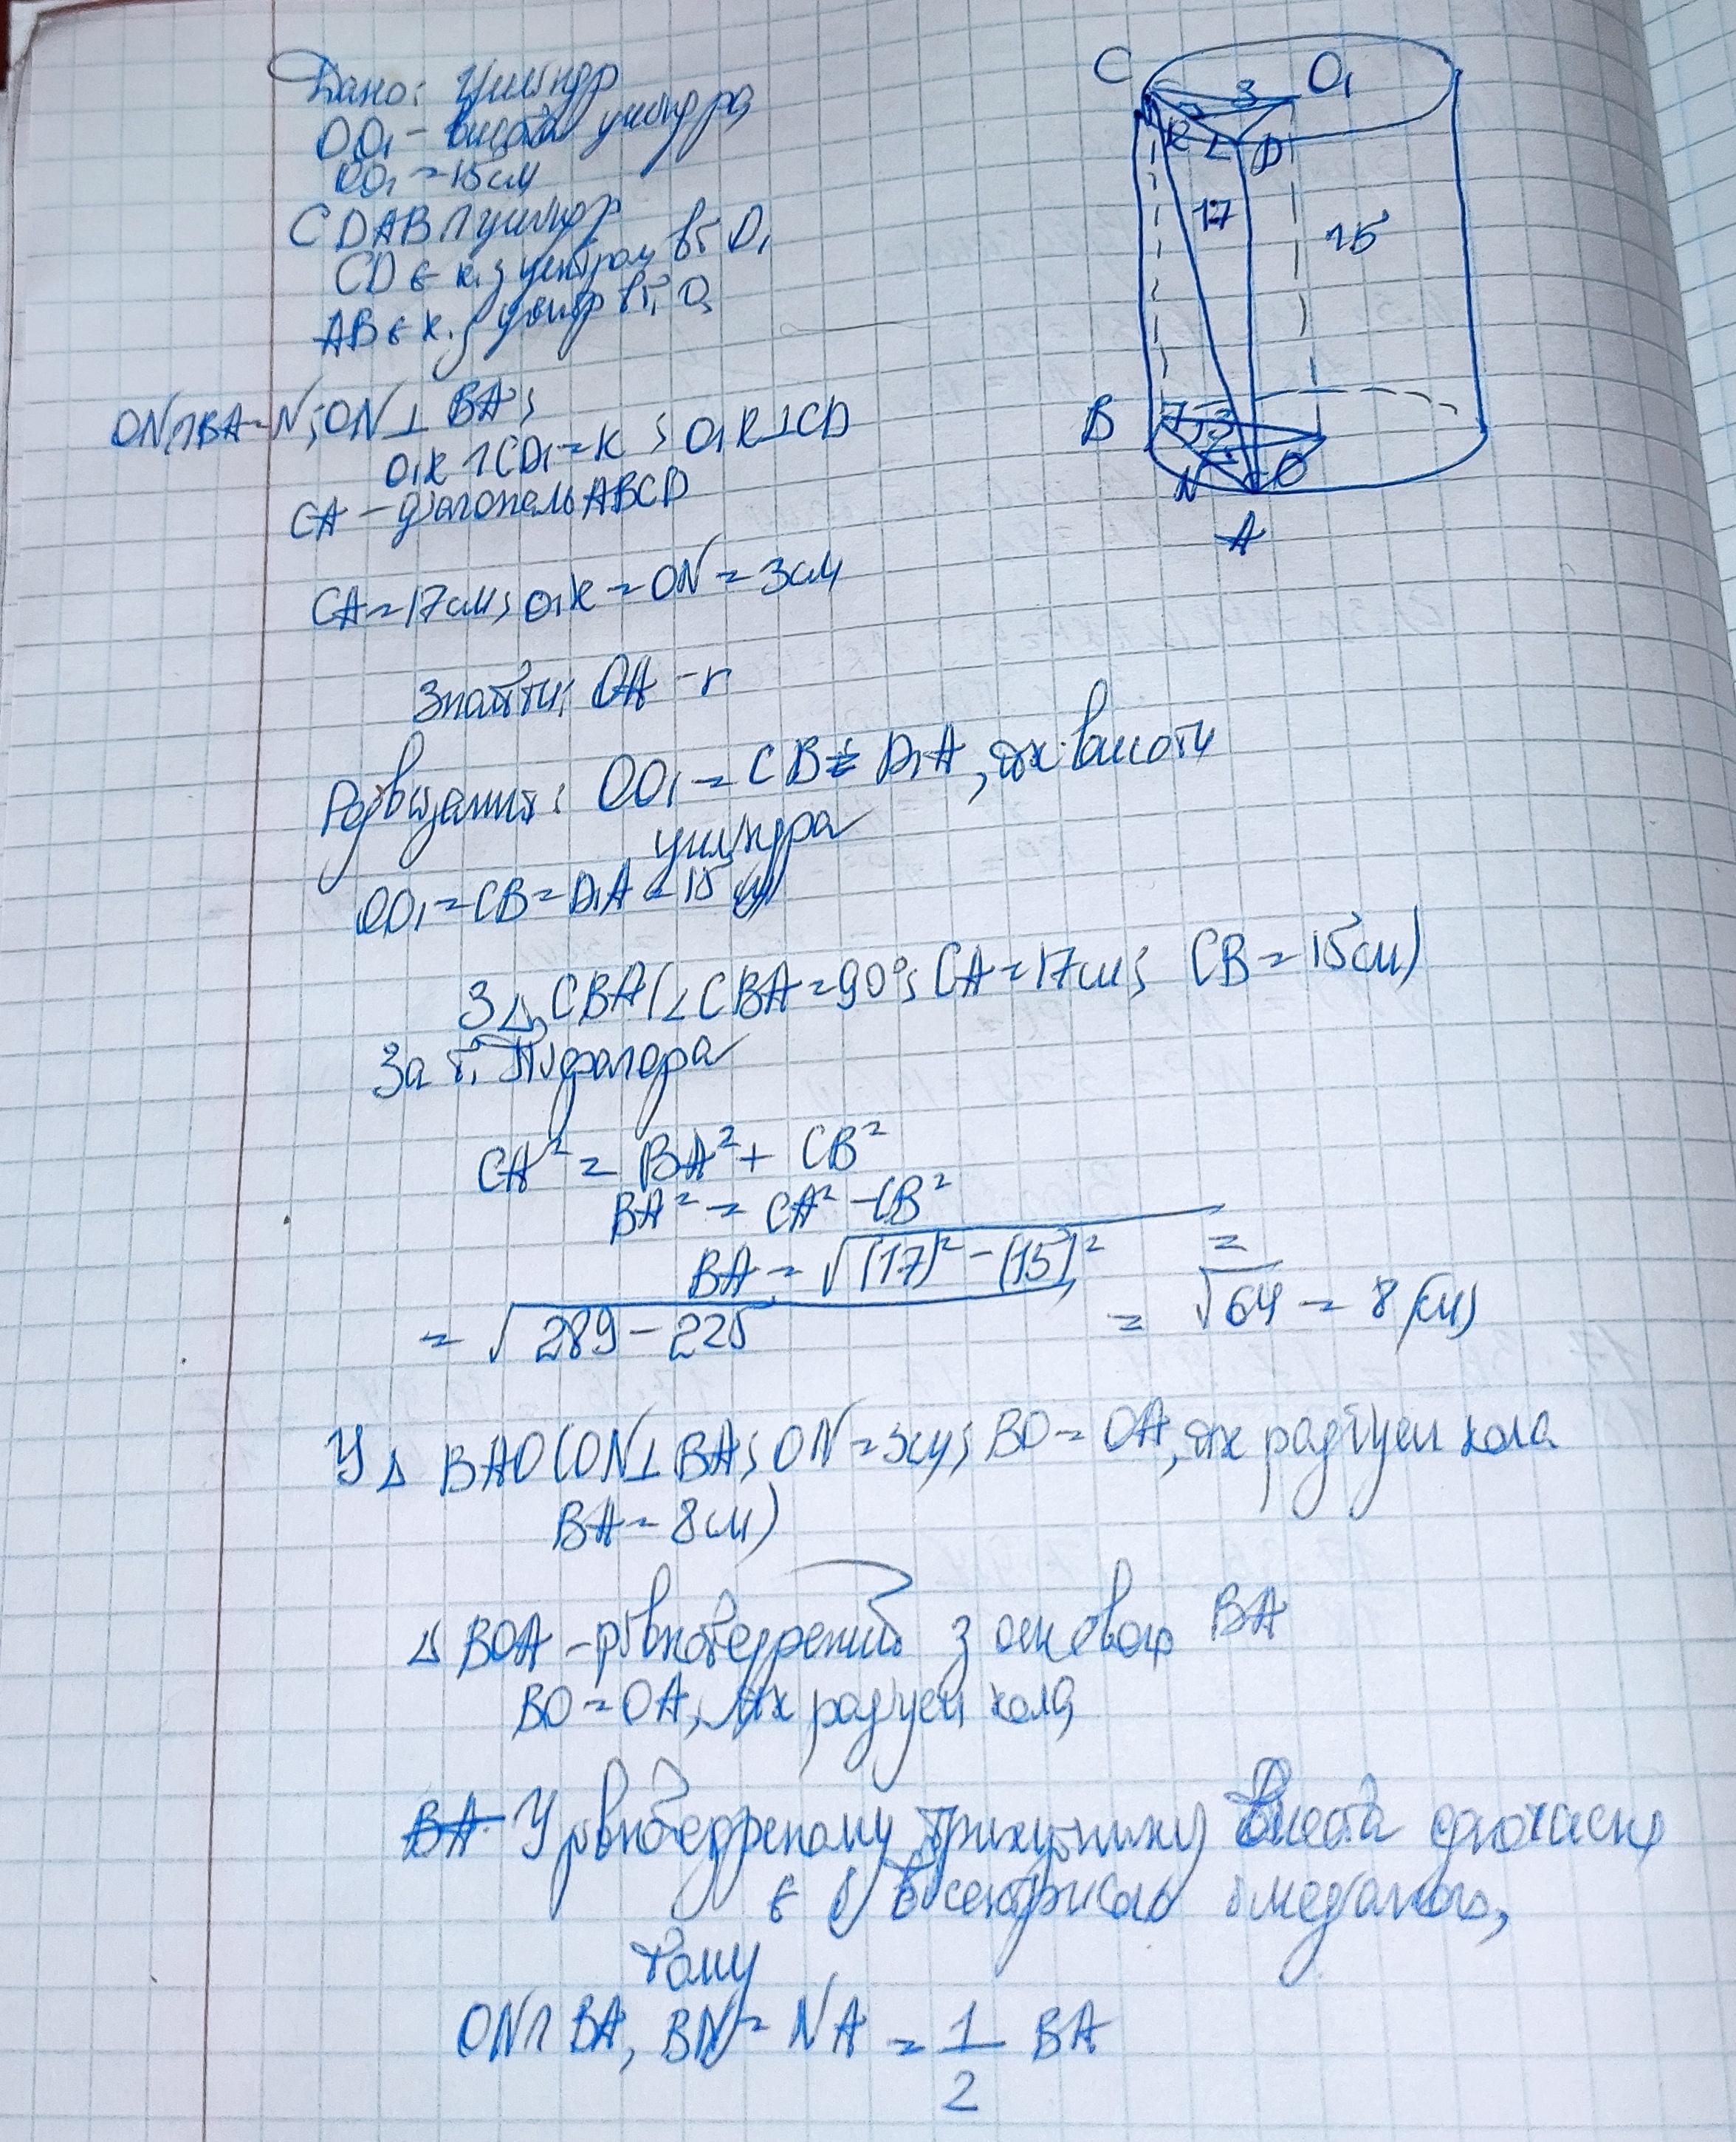 Дано: циліндр
OO₁ - висота циліндра
OO₁ = 15см
CDAB ∩ циліндр
CD є к. з центром в т. O₁
AB є к. з центр в т. O
ON∩BA=N; ON⊥BA;
O₁K∩CD₁=K; O₁K⊥CD
CA - діагональ ABCD
CA=17см; O₁K=ON=3см
Знайти: OA - r
Розвязання: OO₁ = CB = D₁A, як висоти
циліндра
OO₁=CB=D₁A=15см
З △CBA(∠CBA=90°; CA=17см; CB=15см)
За т. Піфагора
CA² = BA² + CB²
BA² = CA² - CB²
BA = √(17)² - (15)² =
= √289 - 225 = √64 = 8(см)
У △ BAO(ON⊥BA; ON=3см; BO=OA, як радіуси кола
BA=8см)
△ BOA - рівнобедрений з основою BA
BO=OA, як радіуси кола
BA. У рівнобедреному трикутнику висота одночасно
є і бісектрисою і медіаною,
тому
ON∩BA, BN=NA = 1/2 BA
C
3
O₁
K
D
17
15
B
3
N
O
A